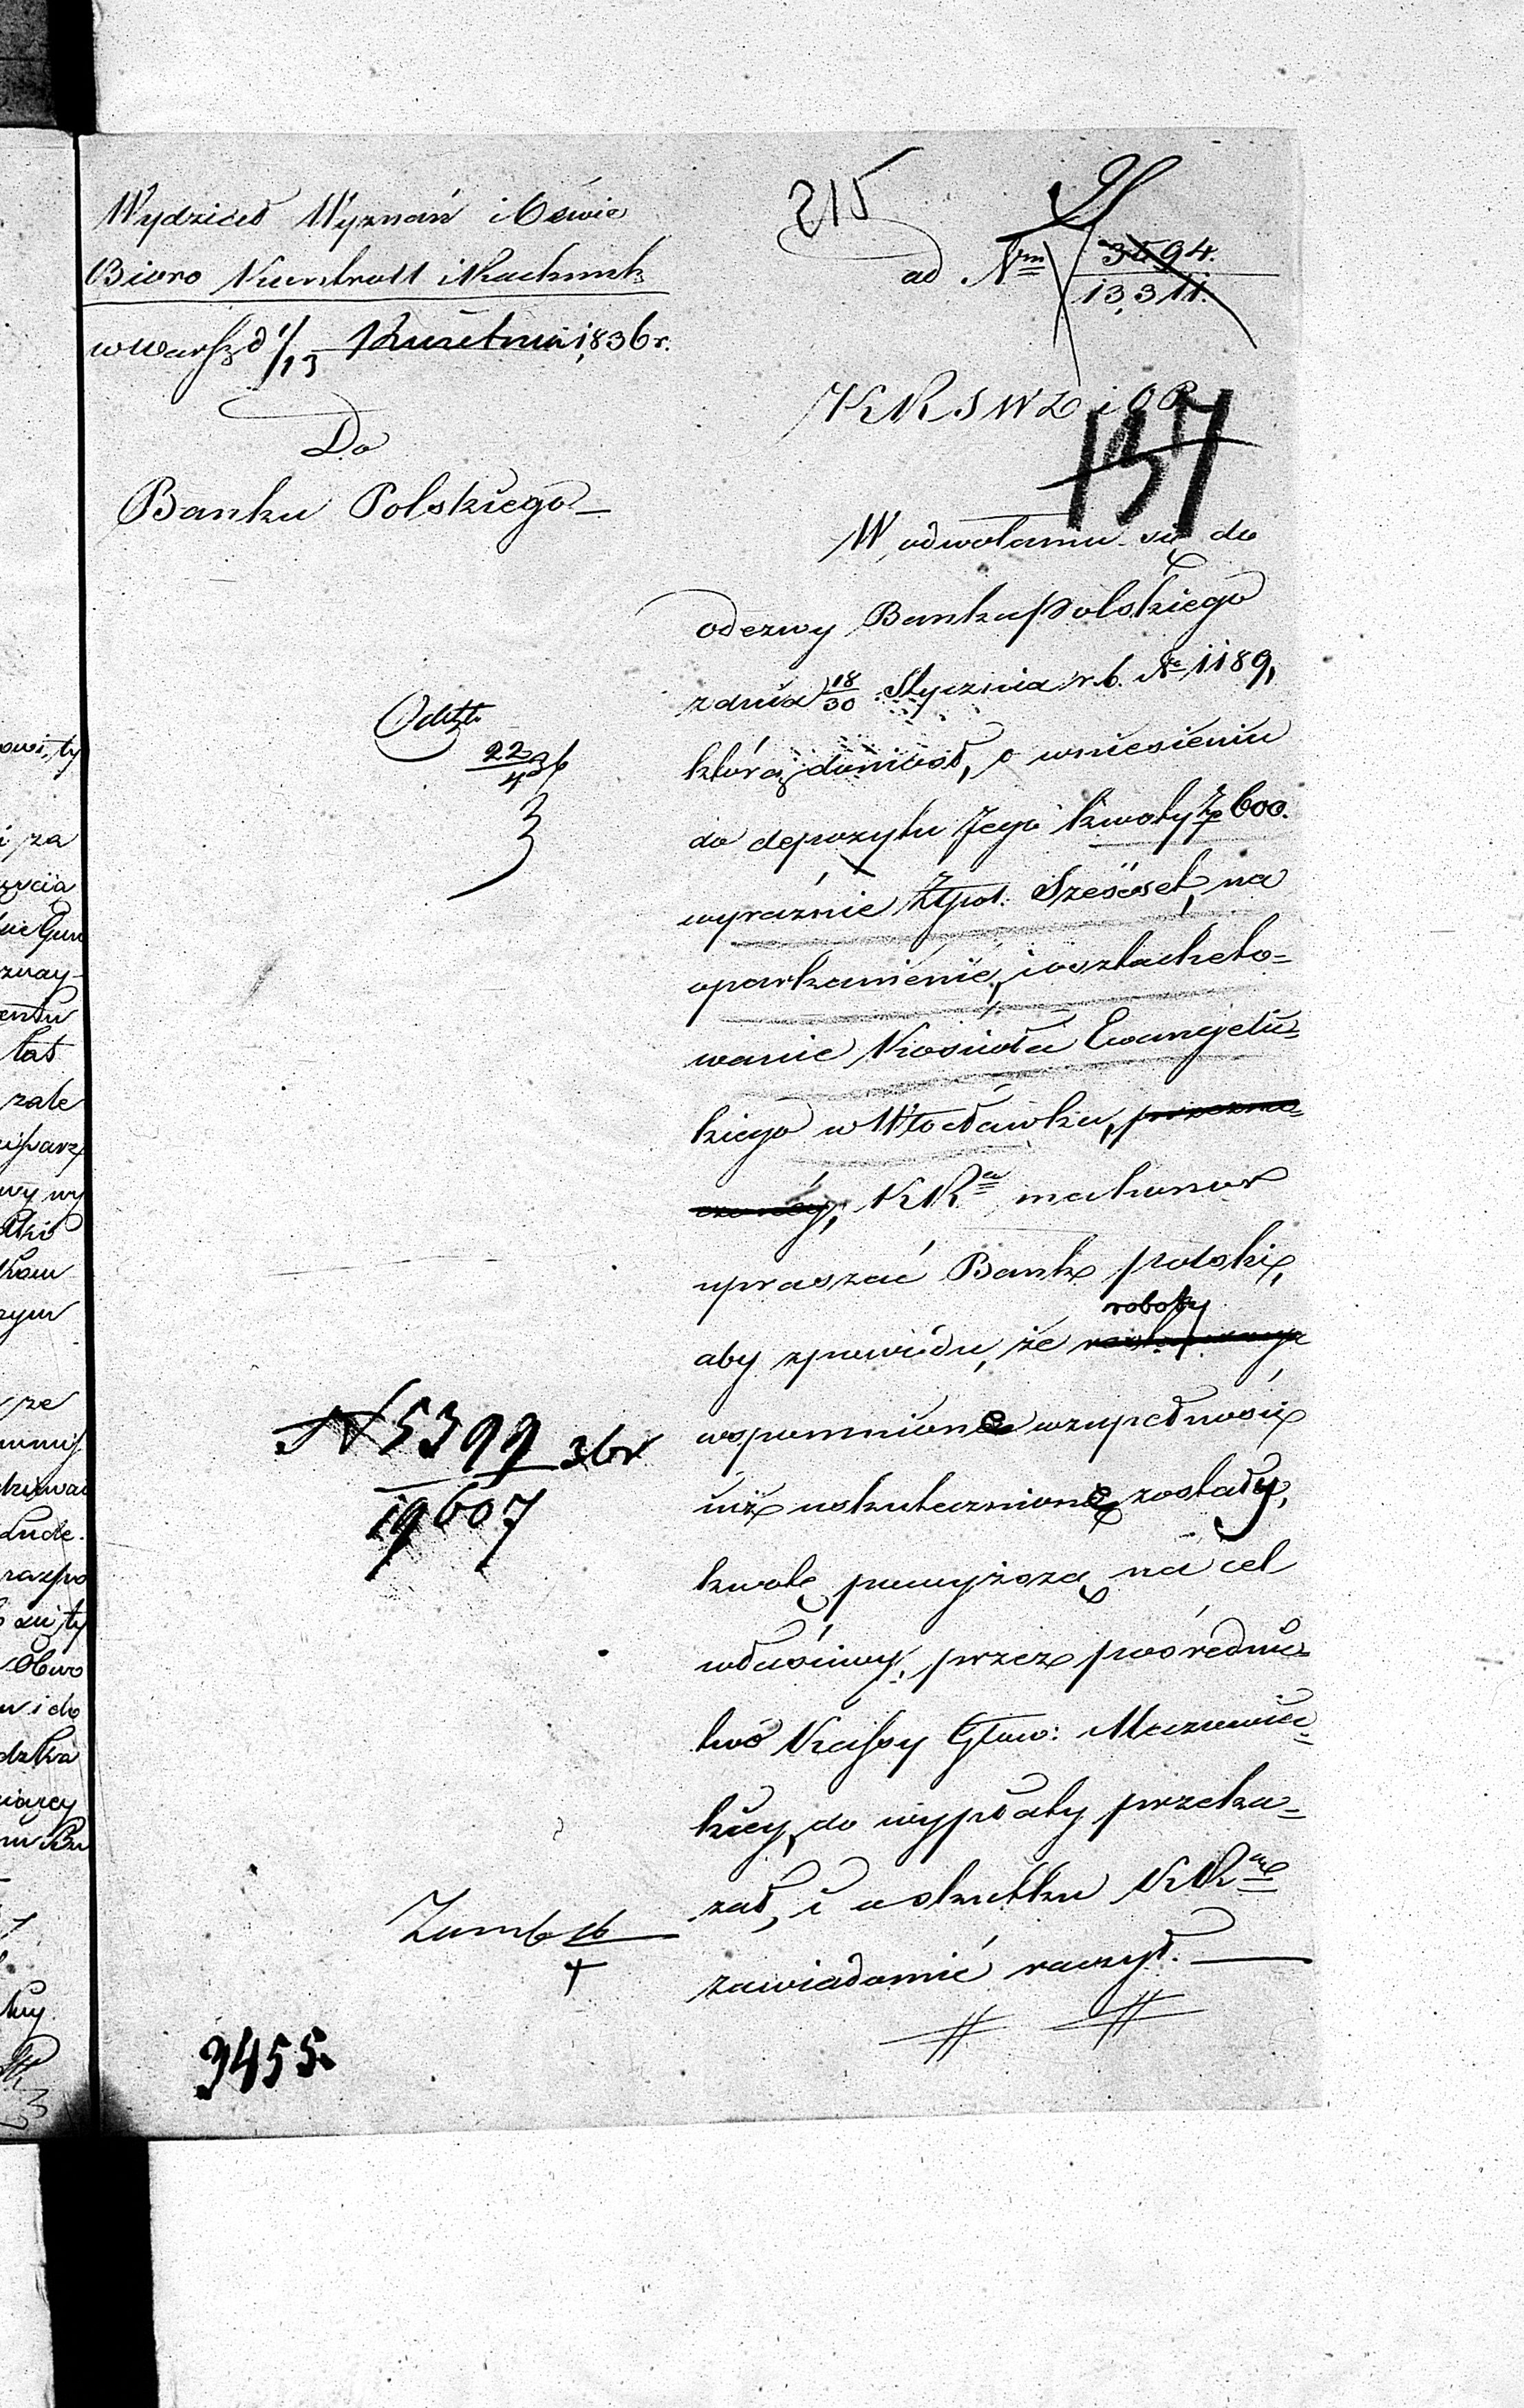 Wydział Wyznań i Oświe
Biuro Kontroli i Rachunk
w Warsz d 1/13 Kwietnia 1836 r.
215
ad Nrm 3594.
13,311.
Do
Banku Polskiego
KRSWD i OP
137
W odwołaniu się do
odezwy Banku Polskiego
z dnia 18/30 Stycznia r. b. No 1189,
którą doniósł, o wniesieniu
do depozytu Jego kwoty Zp 600.
wyraźnie Złpol. Sześćset, na
oparkanienie, i wysztacheto=
wanie Kościoła Ewangelic=
kiego w Włocławku,
KRa ma honor
upraszać Bank polski,
aby z powodu, że roboty
wspomnione w zupełności
już uskutecznione zostały,
kwotę powyższą na cel
właściwy, przez pośrednic=
two Kassy Głów: Mazowiec=
kiey, do wypłaty przeka=
zał, i o skutku KRne
zawiadomić raczył.
22/4 36
N 5399 36 r
19607
3455.